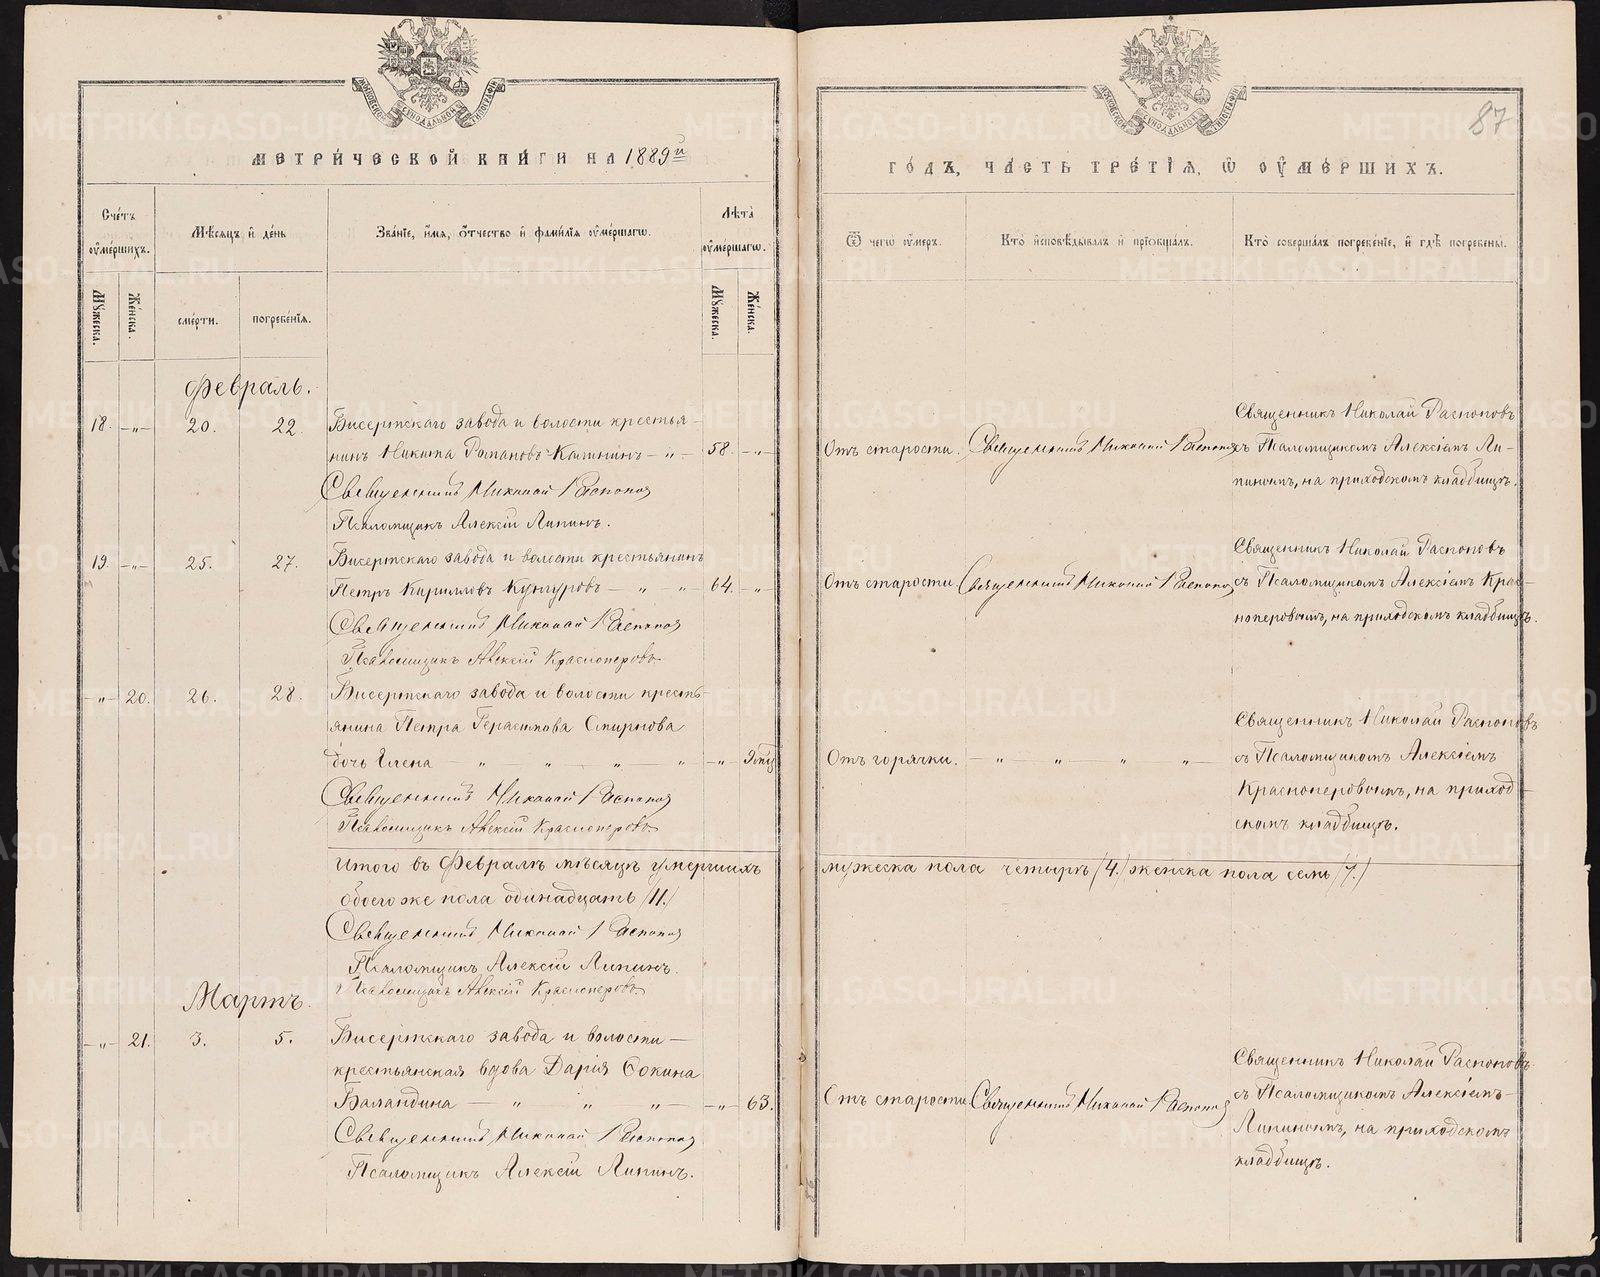 МОСКОВСКОЙ СѴНОДАЛЬНОЙ ТИПОГРАФІИ
МЕТРИ́ЧЕСКОЙ КНИ́ГИ НА 1889й
Сче́тъ ᲂу҆ме́ршихъ.
Мꙋ́жеска.
Же́нска.
Мѣ́сяцъ и҆ де́нь
сме́рти.
погребе́нїя.
Зва́нїе, и҆́мя, ѻ҆́тчество и҆ фами́лїя ᲂу҆ме́ршагѡ.
Лѣ́та ᲂу҆ме́ршагѡ.
Мꙋ́жеска.
Же́нска.
Февраль.
18. -"- 20. 22. Бисертскаго завода и волости крестья-
нинъ Никита Романовъ Калининъ - " - 58. -"-
Священникъ Николай Распопов
Псаломщикъ Алексій Липинъ.
19. -"- 25. 27. Бисертскаго завода и волости крестьянинъ
Петръ Кирилловъ Кунгуровъ - " - " - 64. -"-
Священникъ Николай Распопов
Псаломщикъ Алексій Красноперовъ
-"- 20. 26. 28. Бисертскаго завода и волости кресть-
янина Петра Герасимова Смирнова
дочь Елена - " - " - " - " -"-
Священникъ Николай Распопов
Псаломщикъ Алексій Красноперовъ
Итого въ Февралѣ мѣсяцѣ умершихъ
обоего же пола одинадцать /11./
Священникъ Николай Распопов
Псаломщикъ Алексій Липинъ.
Псаломщикъ Алексій Красноперовъ
Мартъ.
-"- 21. 3. 5. Бисертскаго завода и волости -
крестьянская вдова Дарія Сокина
Баландина - " - " - " - -"- 63.
Священникъ Николай Распопов
Псаломщикъ Алексій Липинъ.
МОСКОВСКОЙ СѴНОДАЛЬНОЙ ТИПОГРАФІИ
87
ГО́ДЪ, ЧА́СТЬ ТРЕ́ТІЯ, Ѡ҆ ОУ҆МЕ́РШИХЪ.
Ѿ чегѡ̀ ᲂу҆́меръ.
Кто̀ и҆сповѣ́дывалъ и҆ прїѡбща́лъ.
Кто̀ соверша́лъ погребе́нїе, и҆ гдѣ̀ погребены̀.
Священникъ Николай Распоповъ
Отъ старости. Священникъ Николай Распопов съ Псаломщикомъ Алексіемъ Ли-
пинымъ, на приходскомъ кладбищѣ.
Священникъ Николай Распоповъ
Отъ старости. Священникъ Николай Распопов съ Псаломщикомъ Алексіемъ Крас-
ноперовымъ, на приходскомъ кладбищѣ.
Священникъ Николай Распоповъ
Отъ горячки. - " - " - " - " - съ Псаломщикомъ Алексіемъ
Красноперовымъ, на приход-
скомъ кладбищѣ.
мужеска пола четыре /4./ женска пола семь /7./
Священникъ Николай Распоповъ
Отъ старости. Священникъ Николай Распопов съ Псаломщикомъ Алексіемъ
Липинымъ, на приходскомъ
кладбищѣ.
METRIKI.GASO-URAL.RU